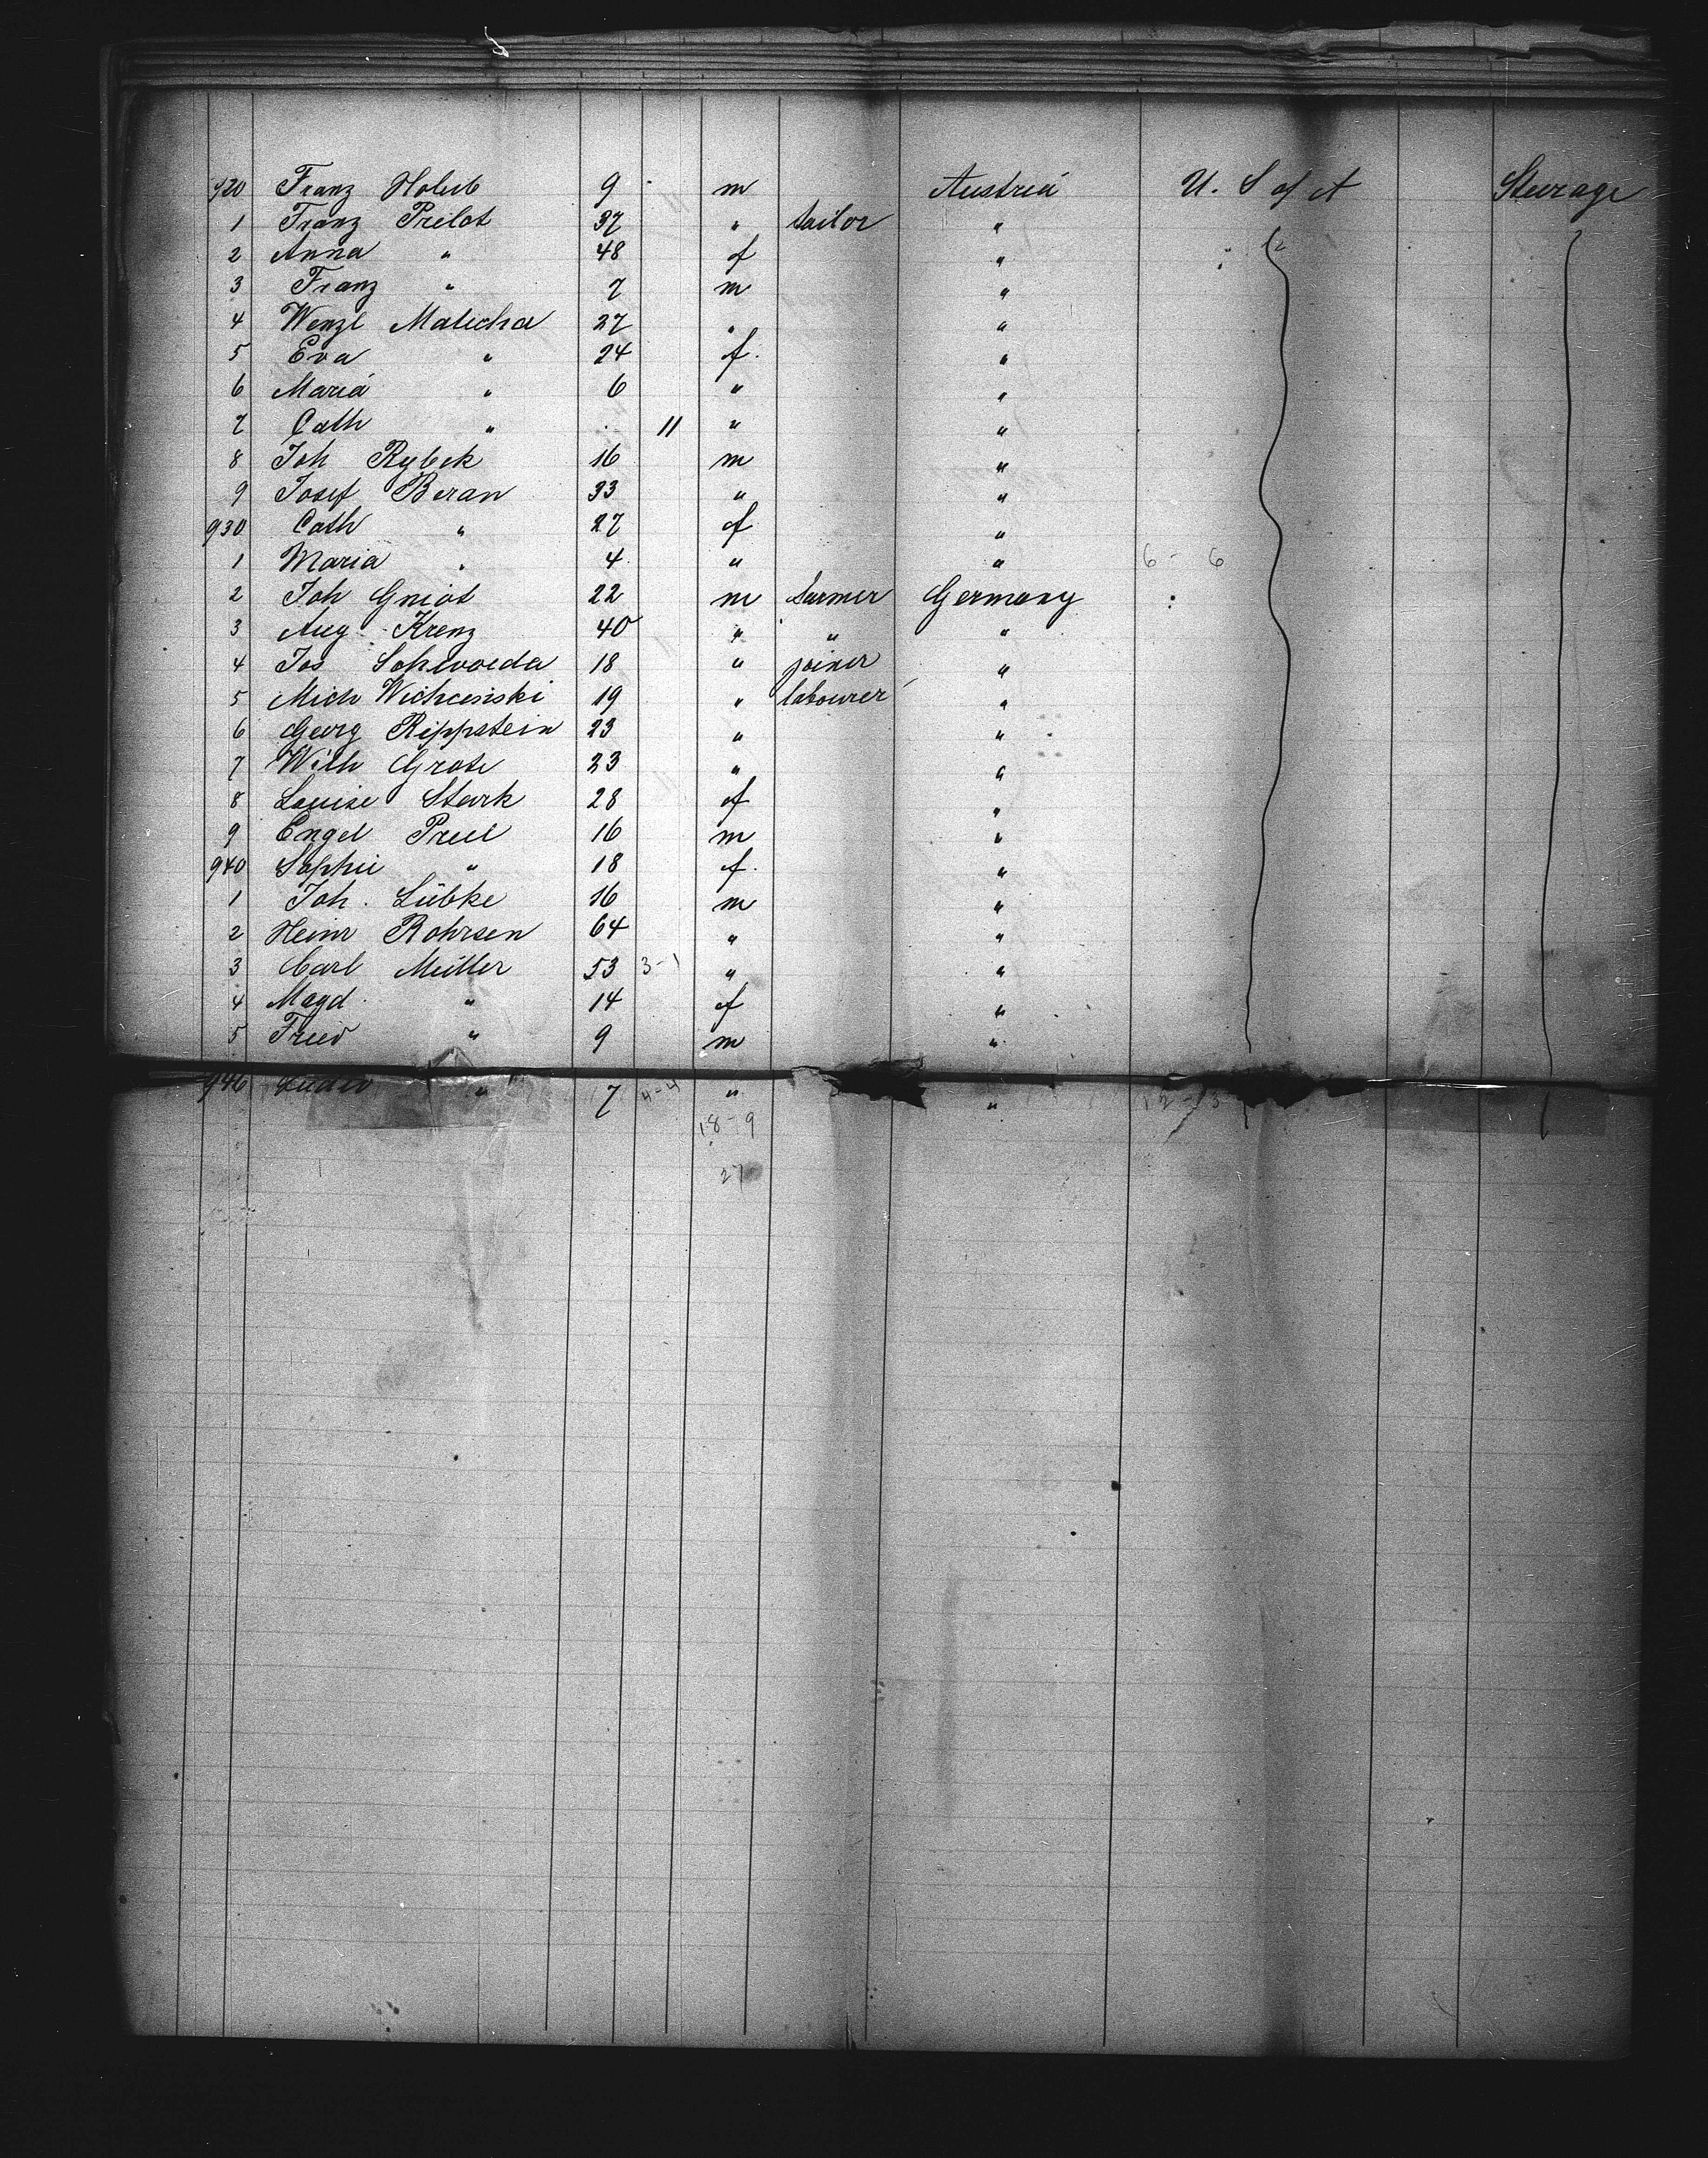 920 Franz Holub 9 m Austria U. S of A Steerage
1 Franz Prilot 37 " tailor "
2 Anna " 48 f "
3 Franz " 7 m "
4 Wenzl Matucha 27 " "
5 Eva " 24 f. "
6 Maria " 6 " "
7 Cath " 11 " "
8 Joh Rybek 16 m "
9 Josef Beran 33 " "
930 Cath " 27 f "
1 Maria " 4 " " 6 - 6
2 Joh Gniot 22 m farmer Germany
3 Aug Krenz 40 " " "
4 Jos Schwoeda 18 " joiner "
5 Mich 19 " labourer "
6 Georg Rippstein 23 " "
7 Wilh Grote 23 " "
8 Louise Stark 28 f "
9 Engel Preel 16 m "
940 Sophie " 18 f. "
1 Joh. Lübke 16 m "
2 Heinr Rohrsen 64 " "
3 Carl Müller 53 3-1 " "
4 Magd. " 14 f "
5 Fried " 9 m "
946 " 7 4-4 " "
18-9
27